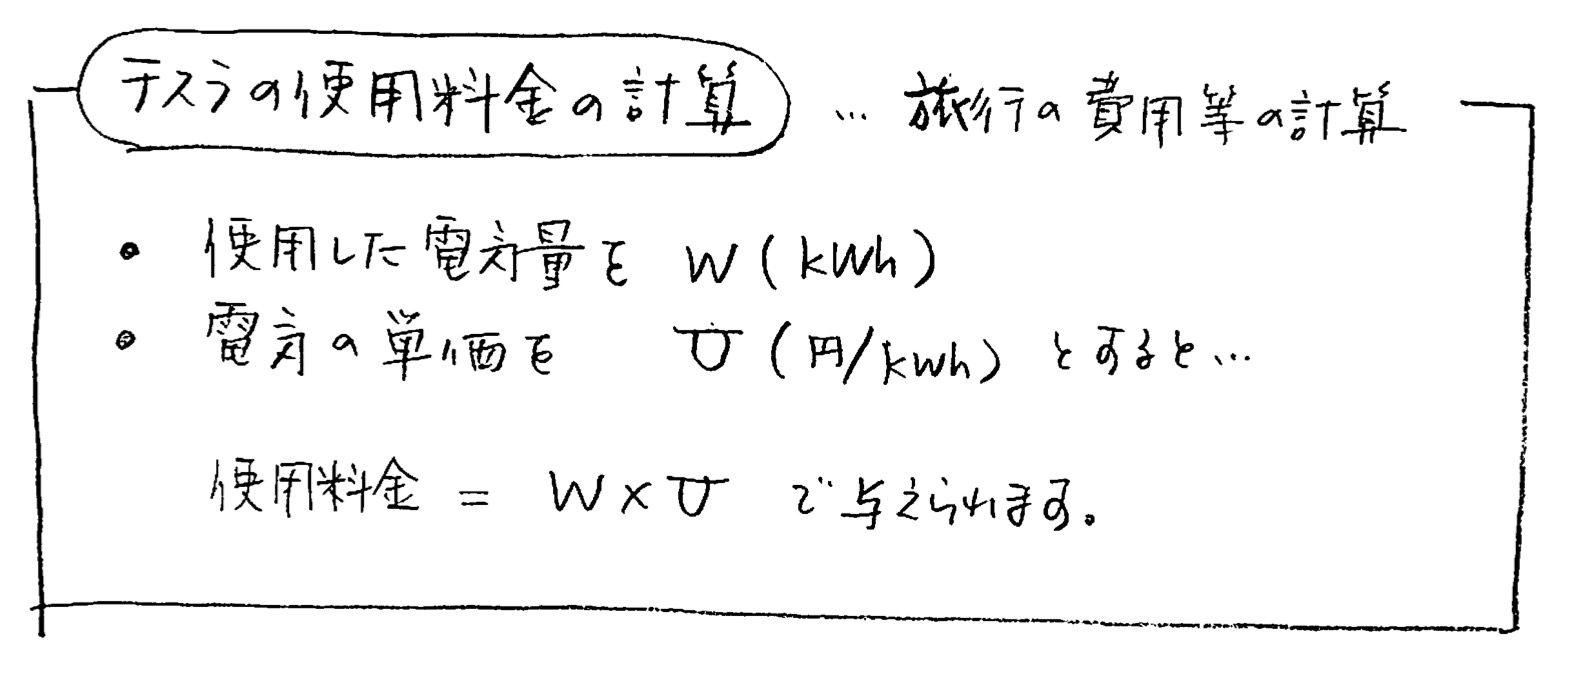 テスラの使用料金の計算 … 旅行の費用等の計算
• 使用した電気量を W (kWh)
• 電気の単価を U (円/kWh) とすると…
使用料金 = W × U で与えられます。